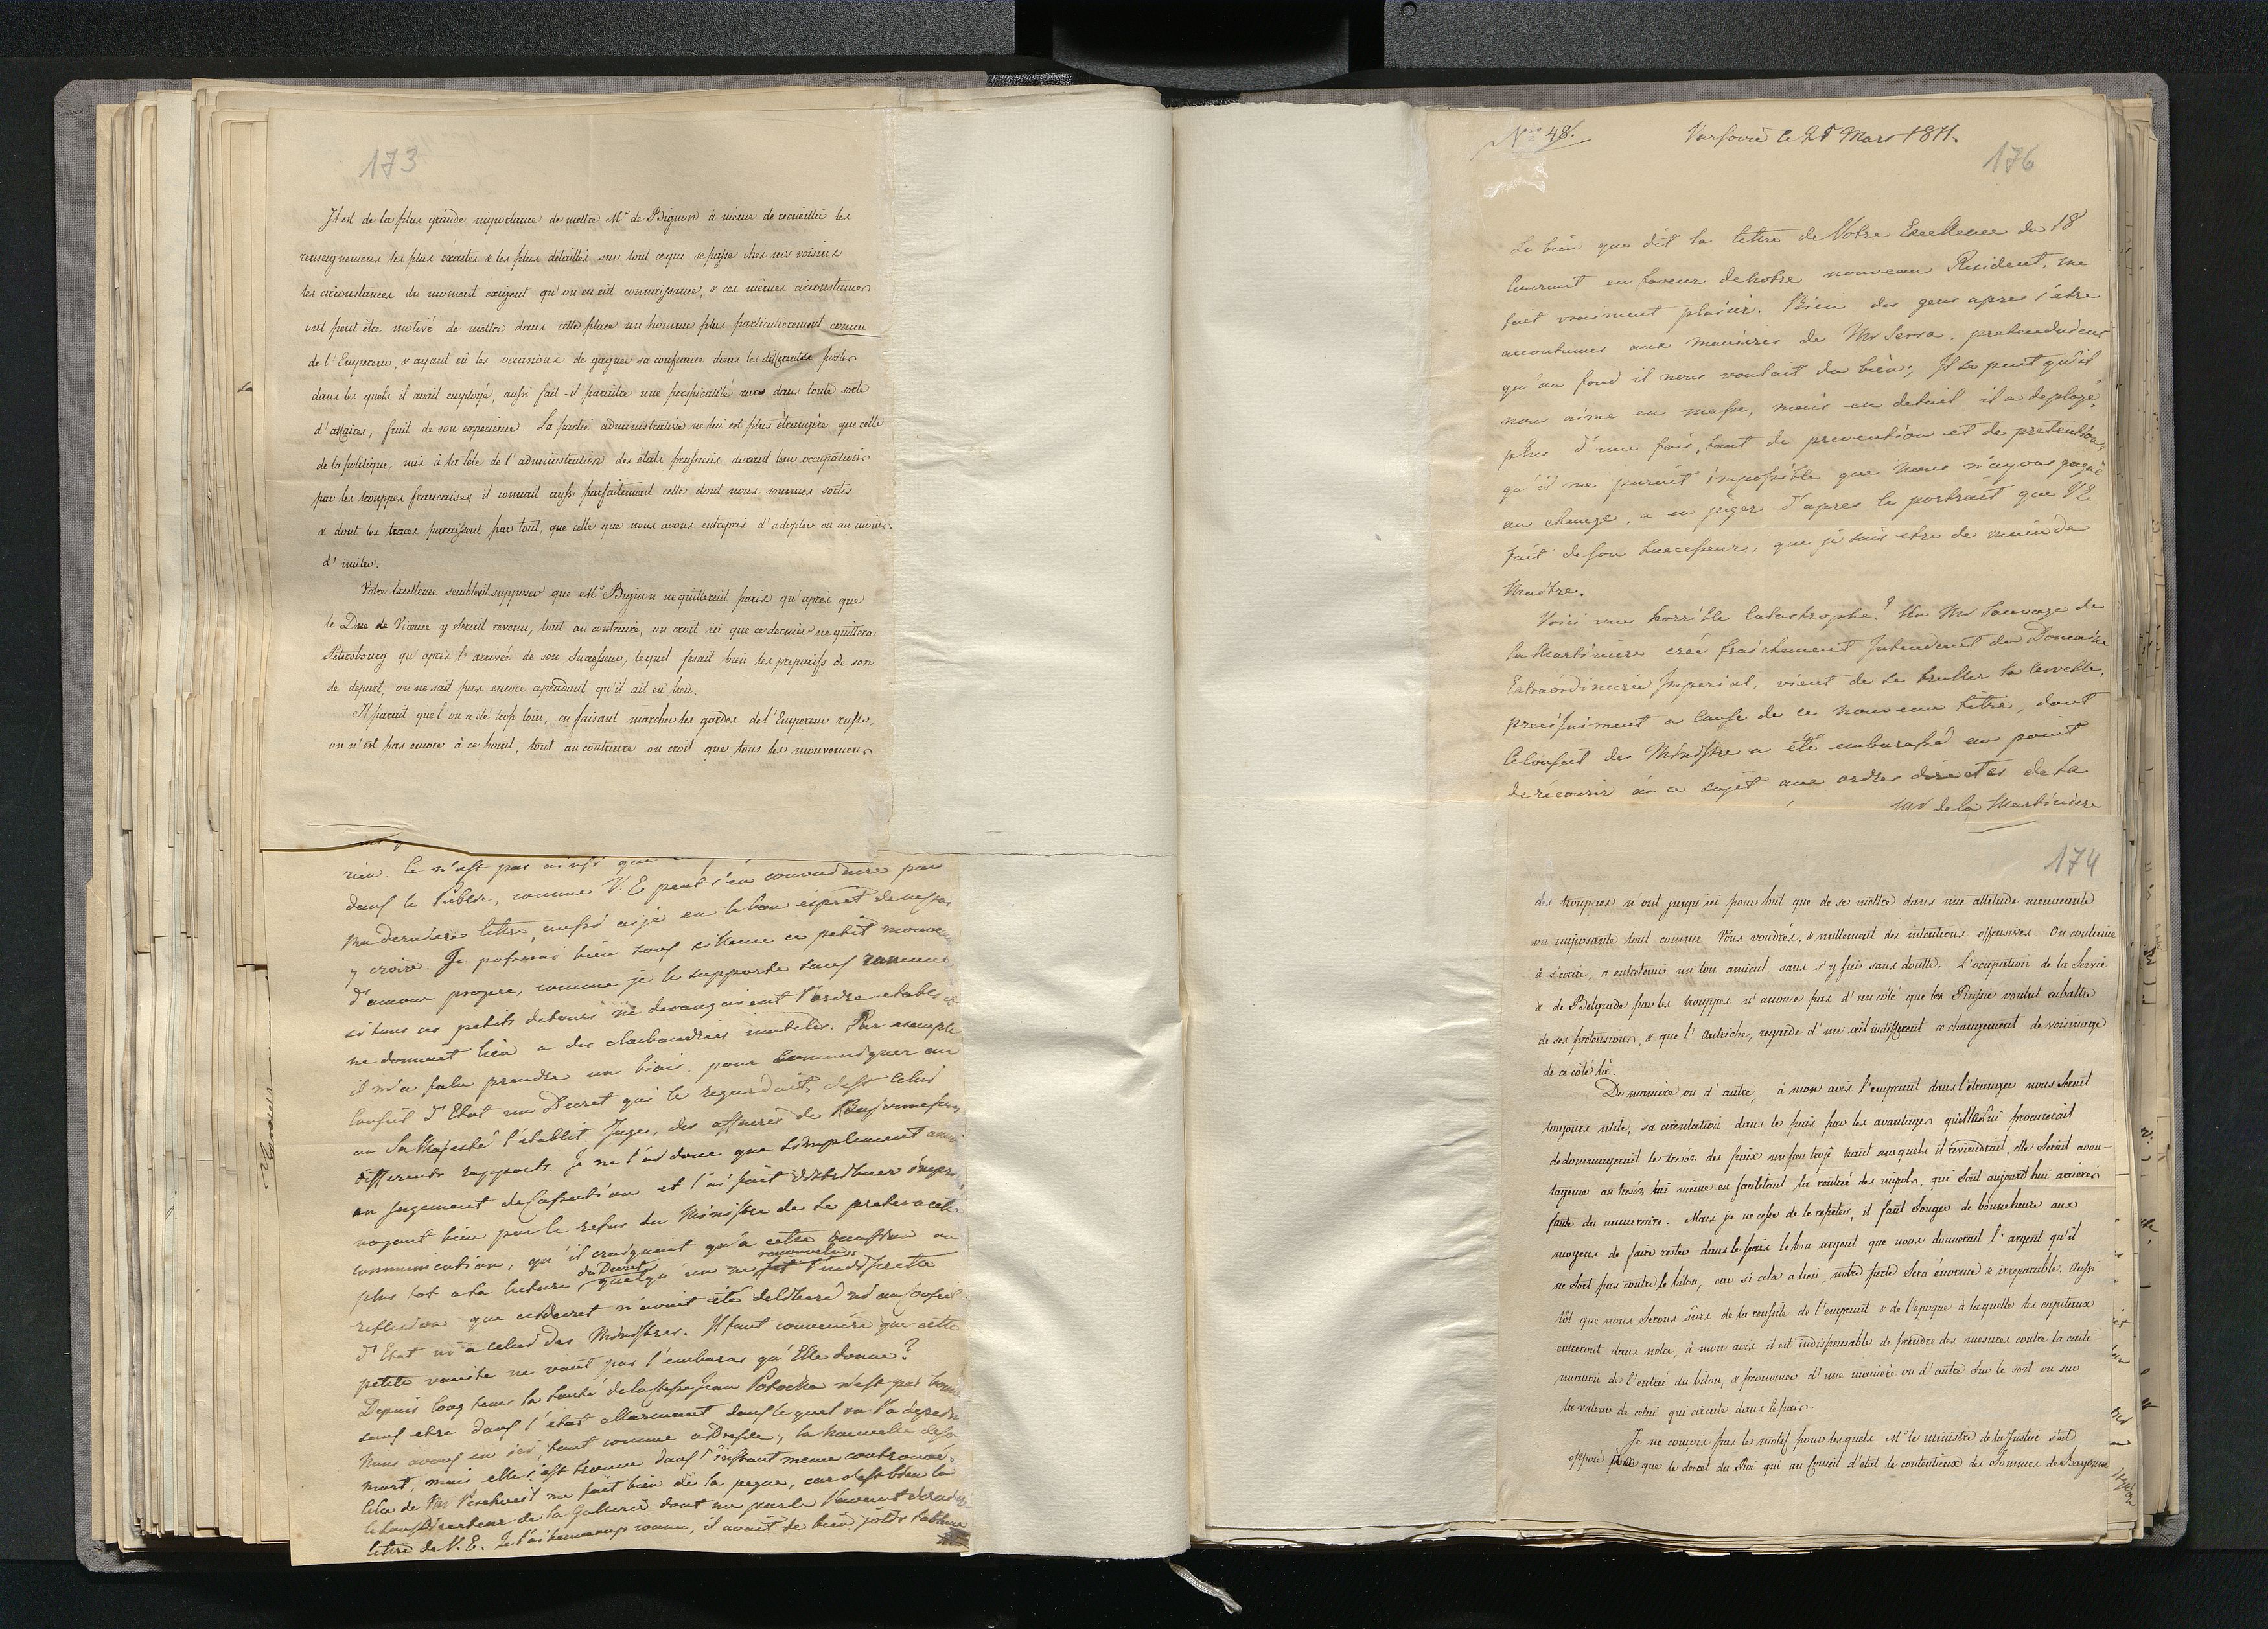 173
Il est de la plus grande importance de mettre Mr de Bignon à même de recueillir les
renseignemens les plus éxactes & les plus détaillés sur tout ce qui se passe chez nos voisins
les circonstances du moment exigent qu'on en eût connaissance, & ces mêmes circonstances
ont peut être motivé de mettre dans cette place un homme plus particulièrement connu
de l'Empereur, & ayant eû les occasions de gagner sa confiance dans les differentes postes
dans les quels il avait employé, aussi fait-il paraitre une perspicacité rare dans toute sorte
d'affaires, fruit de son expérience. La partie administrative ne lui est plus étrangère que celle
de la politique, mis à la tête de l'administration des états prussiens durant leur occupation
par les trouppes francaises, il connait aussi parfaitement celle dont nous sommes sortis
& dont les traces paraissent par tout, que celle que nous avons entrepris d'adopter ou au moins
d'imiter.
Votre Excellence semblerait supposer que Mr Bignon ne quitterait paris qu'après que
le Duc de Vicence y serait revenu, tout au contraire, on croit ici que ce dernier ne quittera
Pétersbourg qu'après l'arrivée de son Successeur, lequel fesait bien les preparatifs de son
de depart, on ne sait pas encore cependant qu'il ait eû lieu.
Il parait que l'on a été trop loin, en faisant marcher les gardes de l'Empereur russe,
on n'est pas encore à ce point, tout au contraire on croit que tous les mouvemens
rien. Ce n'est pas ainsi que
dans le Public, comme V. E peut s'en convaincre par
ma derniere lettre, aussi ai je eu le bon esprit de ne pas
y croire. Je passerai bien sous silence ce petit mouve
d'amour propre, comme je le supporte sans rancune
si tous ces petits detours ne derangeaient l'ordre etabli et
ne donnaient lieu a des clabauderies inutiles. Par exemple
il m'a falu prendre un biais, pour communiquer au
Conseil d'Etat un Decret qui le regardait, c'est celui
ou Sa Majesté l'etablit Juge, des affaires de Bayonne sous
differents rapports. Je ne l'ai donc que simplement
au jugement de Cassation et l'ai fait distribuer
voyant bien par le refus du Ministre de se preter a cette
communication, qu'il craignait qu'à cette occasion ou
plus tot a la lecture du Decret, quelqu'un ne fit renouveler l'indiscrette
reflexion que ce decret n'avait été deliberé ni au Conseil
d'Etat ni a celui des Ministres. Il faut convenir que cette
petite vanité ne vaut pas l'embaras qu'Elle donne?
Depuis long tems la santé de la Ctesse Jean Potocka n'est pas bonne
sans etre dans l'etat allarmant dans lequel on l'a depeint
Nous avons eu ici, tout comme a Dresde, la nouvelle de sa
mort, mais elle s'est trouvée dans l'instant meme controuvée.
Celle de Mr me fait bien de la peine, car c'est bien la
le bon Directeur de la Gallerie dont me parle l'avant derniere
lettre de V. E. Je l'ai beaucoup connu, il avait de bien jolis tableaux
No 48.
Varsovie le 25 Mars 1811.
176
Le bien que dit la lettre de Votre Excellence du 18
Courant en faveur de notre nouveau Resident, me
fait vraiment plaisir. Bien des gens apres s'etre
accoutumés aux manieres de Mr Serra, pretendaient
qu'au fond il nous voulait du bien; Il se peut qu'il
nous aime en masse, mais en detail il a deployé
plus d'une fois, tant de prevention et de pretention,
qu'il me parait impossible que nous n'ayons gagné
au change, a en juger d'apres le portrait que V E
fait de son Successeur, que je sais etre de main de
Maitre.
Voici une horrible Catastrophe! Un Mr Sauvage de
la Martiniere créé fraichement Intendent du Domaine
Extraordinaire Imperial, vient de se bruller la cervelle,
precisement a cause de ce nouveau titre, dont
le Conseil des Ministre a été embarassé au point
de récourir à ce sujet aux ordres directes de Sa
Mr de la Martiniere
174
des trouppes n'ont jusqu'ici pour but que de se mettre dans une attitude menacante
ou imposante tout comme Vous voudrés, & nullement des intentions offensives. On continue
à s'ecrire, a entretenir un ton amical, sans s'y fier sans doutte. L'ocupation de la Servie
& de Belgrade par les trouppes n'anonce pas d'un côté que la Russie voulut rabattre
de ses pretensions, & que l'Autriche, regarde d'un œil indifferent ce changement de voisinage
de ce côté là.
De manière ou d'autre, à mon avis l'emprunt dans l'étranger nous serait
toujours utile, sa circulation dans le païs par les avantages qu'elle lui procurerait
dedommagerait le tresor des fraix un peu trop haut auxquels il reviendrait, elle serait avan-
tageuse au tresor lui même en facilitant la rentrée des impots, qui sont aujourd'hui arriérés
faute de numeraire. Mais je ne cesse de le repeter, il faut songer de bonne heure aux
moyens de faire rester dans le païs le bon argent que nous donnerait l'argent qu'il
ne sort pas contre le billon, car si cela a lieu, notre perte sera énorme & irreparable. Aussi
tôt que nous serons sûrs de la reussite de l'emprunt & de l'époque à laquelle les capitaux
entreront dans notre, à mon avis il est indispensable de prendre des mesures contre la conti
nuation de l'entrée du billon, & prononcer d'une manière ou d'autre sur le sort ou sur
la valeur de celui qui circule dans le païs.
Je ne conçois pas le motif pour lesquels Mr le ministre de la Justice s'est
opposé que le decret du Roi qui au Conseil d'état le contentieux des Sommes de Bayonne